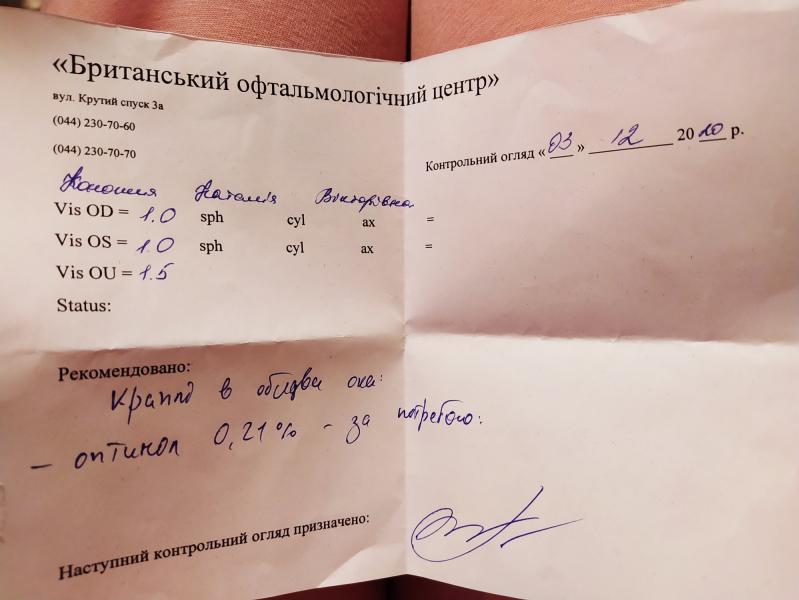 «Британський офтальмологічний центр»
вул. Крутий спуск 3а
(044) 230-70-60
(044) 230-70-70
Контрольний огляд «03» 12 2020 р.
Наталія Вікторівна
Vis OD = 1.0 sph cyl ax =
Vis OS = 1.0 sph cyl ax =
Vis OU = 1.5
Status:
Рекомендовано:
Краплі в обидва ока:
– оптинол 0,21% – за потребою.
Наступний контрольний огляд призначено: